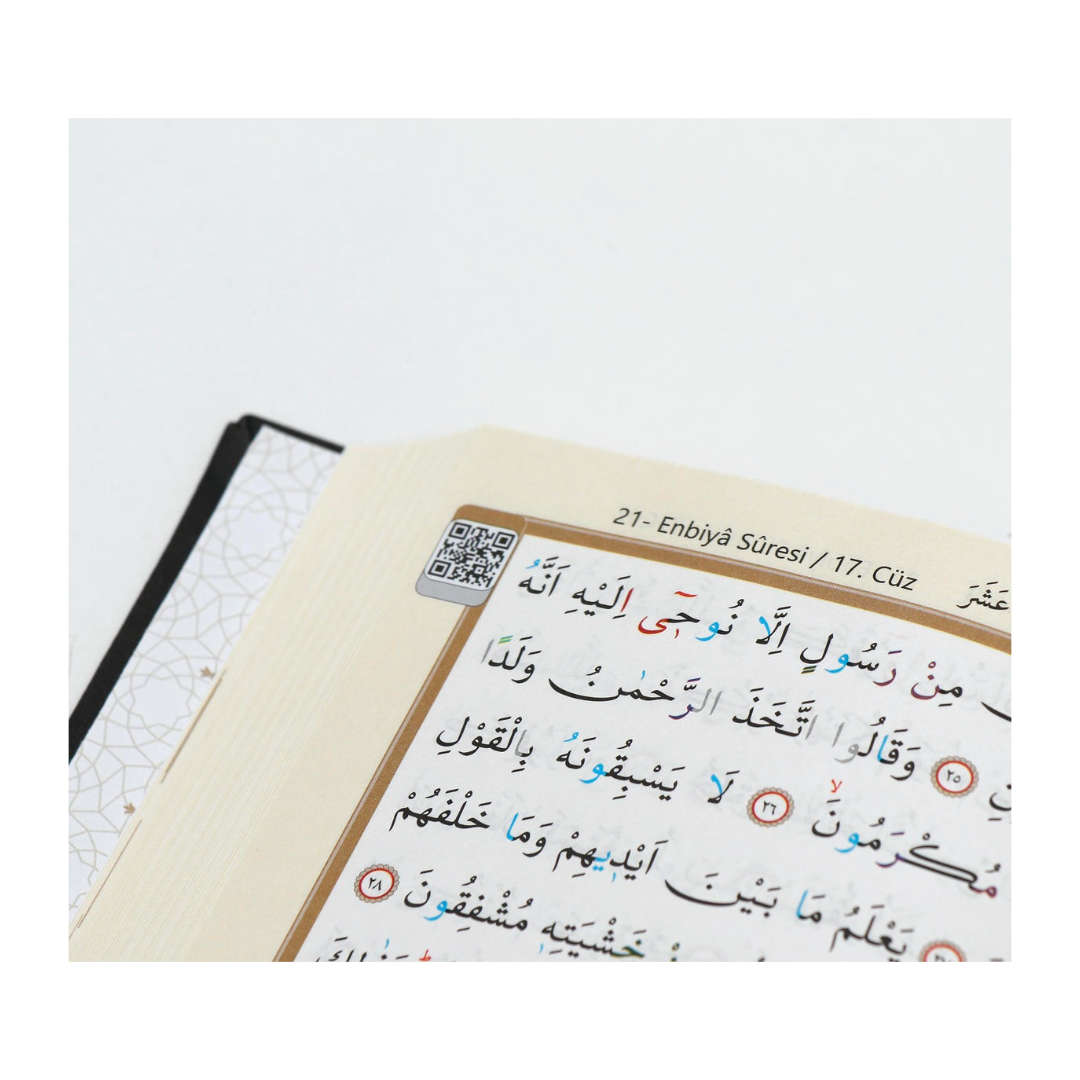 21- Enbiyâ Sûresi / 17. Cüz
عَشَرَ
مِنْ رَسُولٍ اِلَّا نُوحٓي اِلَيْهِ اَنَّهُ
٢٥ وَقَالُوا اتَّخَذَ الرَّحْمٰنُ وَلَدًا
مُكْرَمُونَۙ ٢٦ لَا يَسْبِقُونَهُ بِالْقَوْلِ
يَعْلَمُ مَا بَيْنَ اَيْدٖيهِمْ وَمَا خَلْفَهُمْ
خَشْيَتِهٖ مُشْفِقُونَ ٢٨